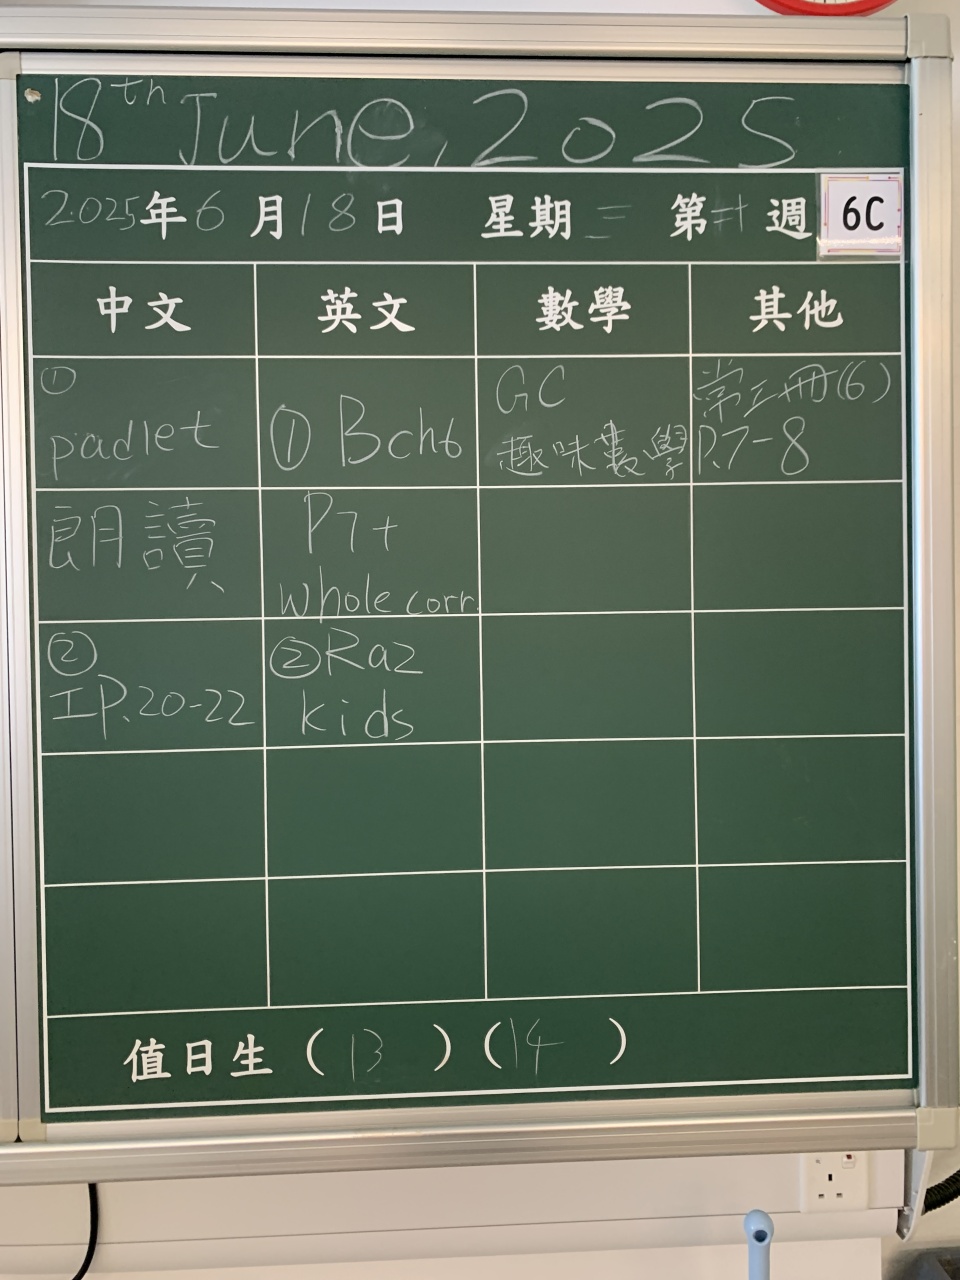 18th June, 2025
2025年6月18日 星期三 第卅週 6C
中文 英文 數學 其他
① padlet
朗讀
②
工P.20-22
① Bch6
P7+
whole corr.
② Raz
kids
GC
趣味數學
常三冊(6)
P.7-8
值日生 (13) (14)